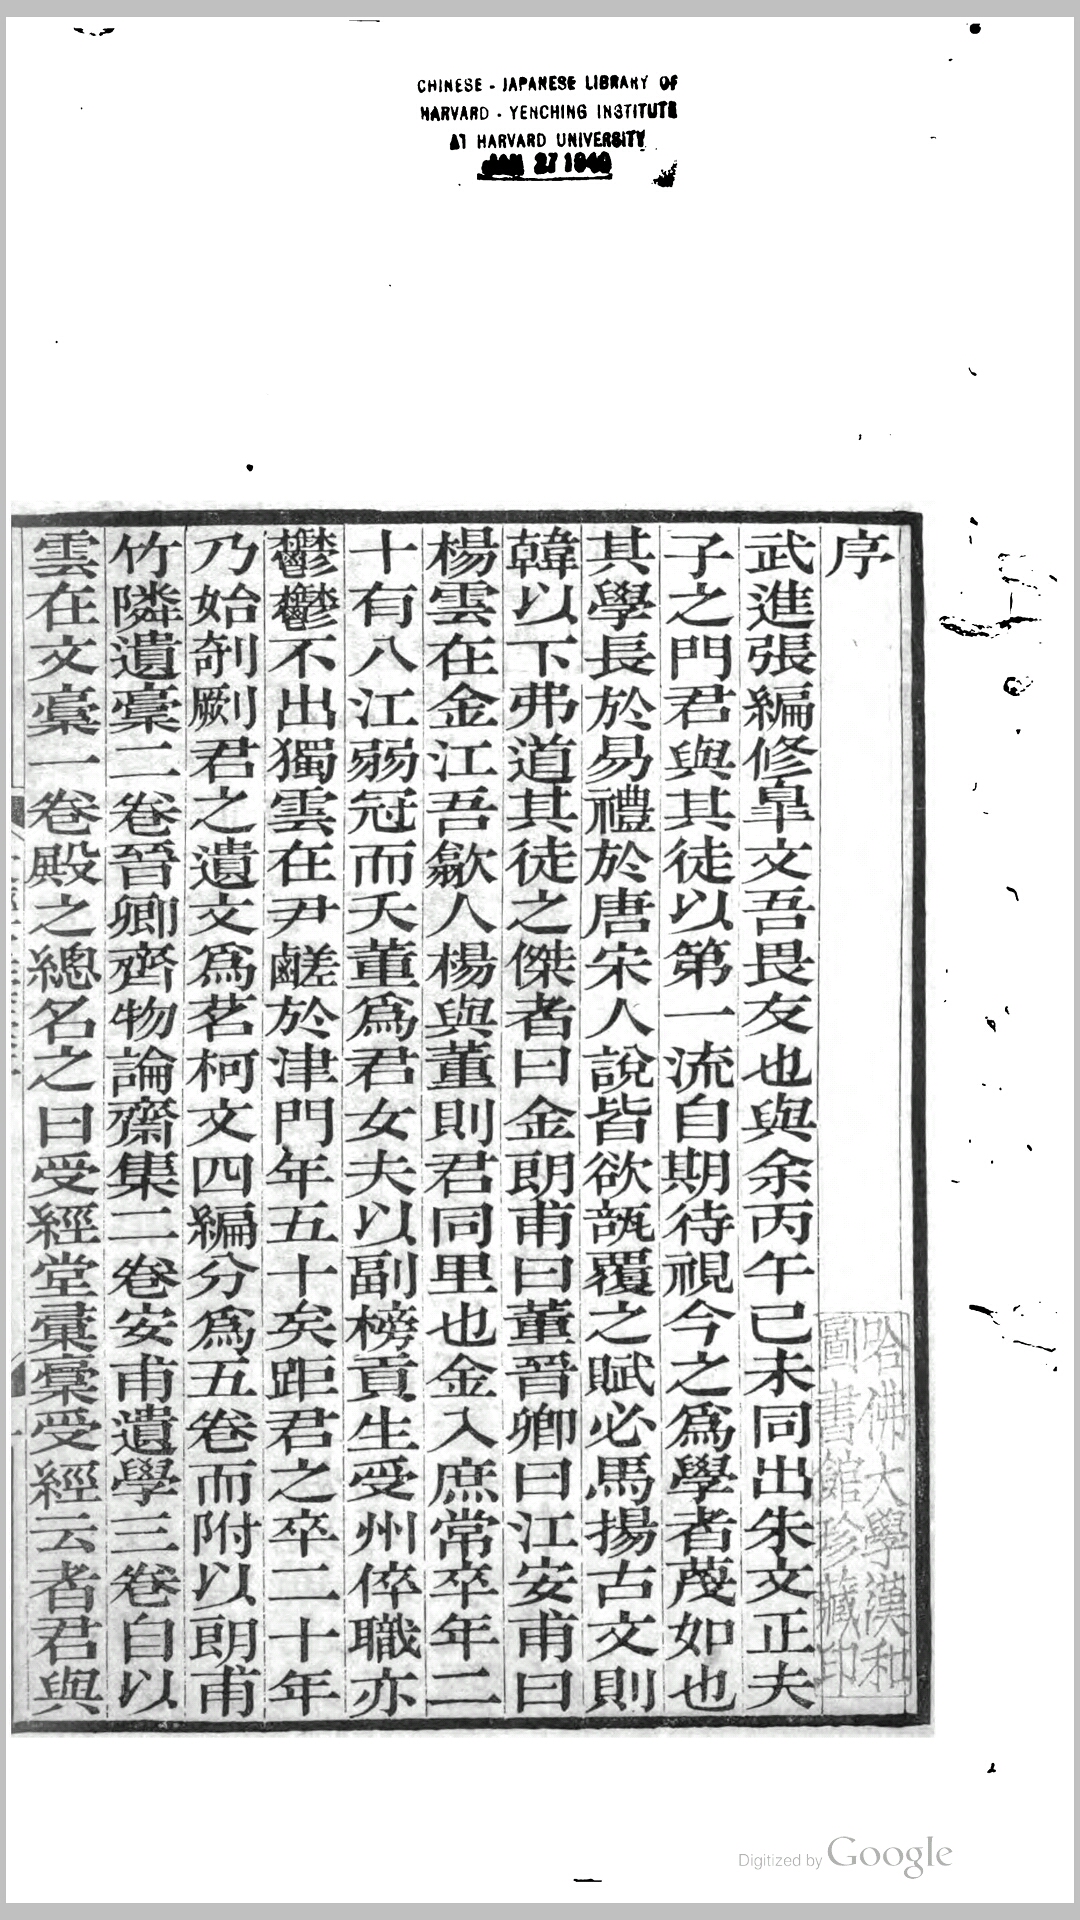 CHINESE - JAPANESE LIBRARY OF
HARVARD - YENCHING INSTITUTE
AT HARVARD UNIVERSITY
JAN 27 1940
序
武進張編修臯文吾畏友也與余丙午己未同出朱文正夫
子之門君與其徒以第一流自期待視今之爲學者蔑如也
其學長於易禮於唐宋人說皆欲瓿覆之賦必馬揚古文則
韓以下弗道其徒之傑者曰金朗甫曰董晉卿曰江安甫曰
楊雲在金江吾歙人楊與董則君同里也金入庶常卒年二
十有八江弱冠而夭董爲君女夫以副榜貢生受州倅職亦
鬱鬱不出獨雲在尹鹺於津門年五十矣距君之卒二十年
乃始剞劂君之遺文爲茗柯文四編分爲五卷而附以朗甫
竹隣遺稾二卷晉卿齊物論齋集二卷安甫遺學三卷自以
雲在文稾一卷殿之總名之曰受經堂彙稾受經云者君與
哈佛大學漢和
圖書館珍藏印
Digitized by Google